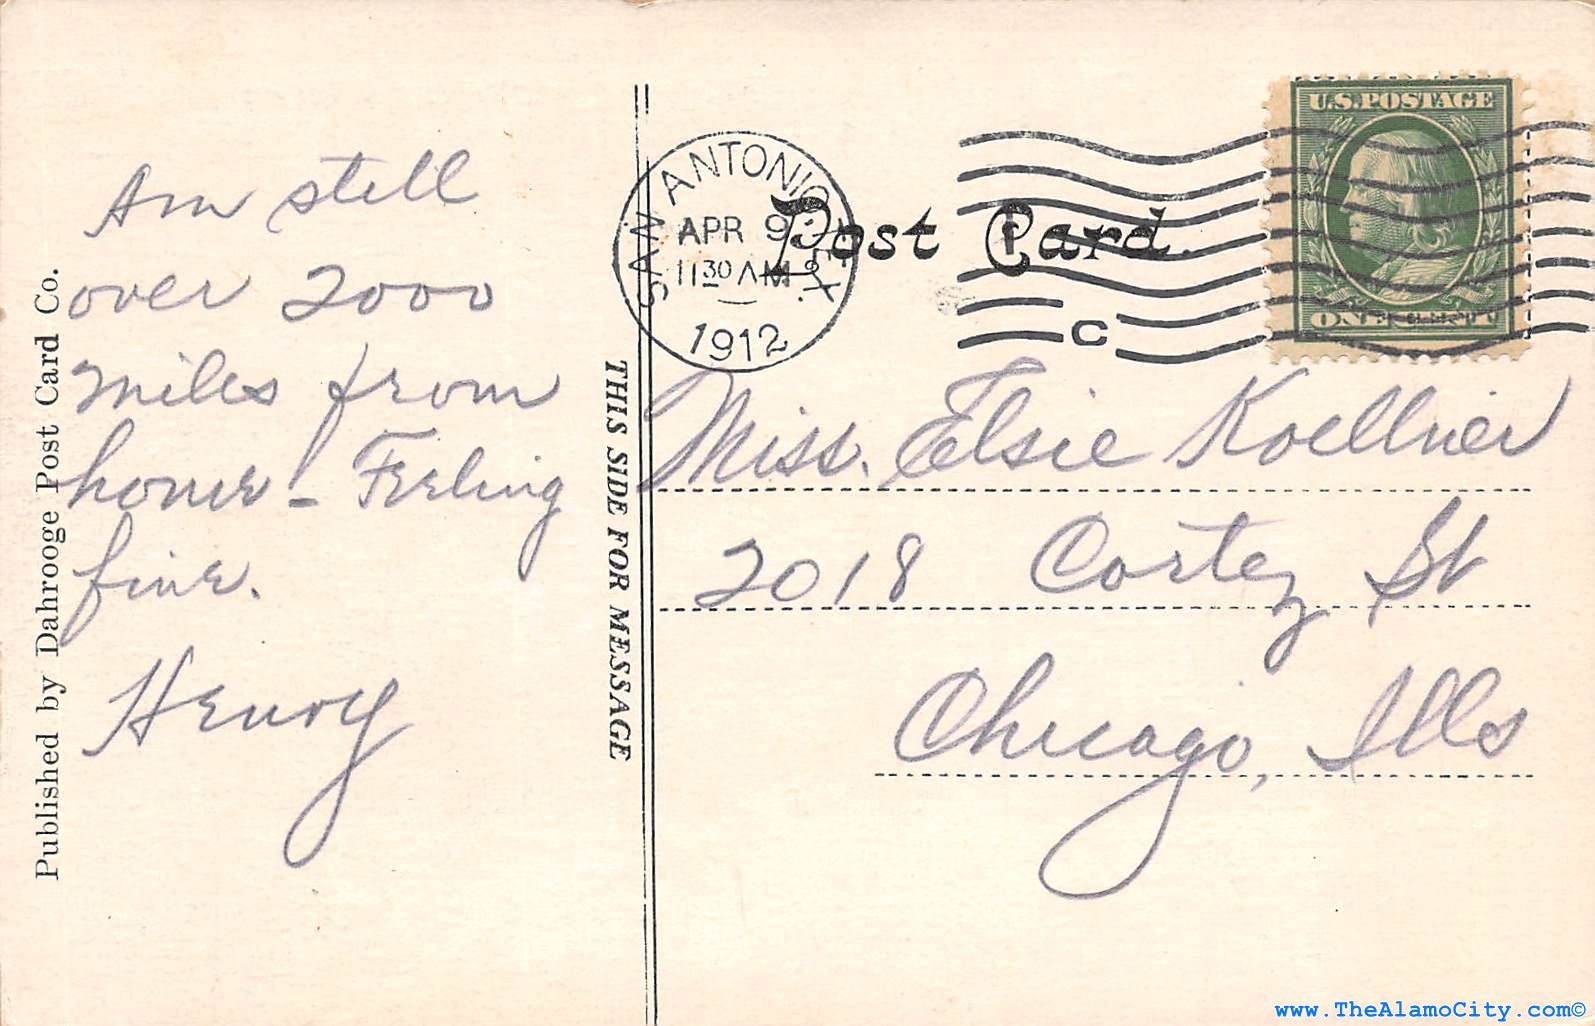 Am still
over 2000
miles from
home - Feeling
fine.
Henry
Published by Dahrooge Post Card Co.
THIS SIDE FOR MESSAGE
SAN ANTONIO, TEX.
APR 9
11 30 AM
1912
Post Card.
C
U.S. POSTAGE
ONE CENT
Miss. Elsie Koellner
2018 Cortez St
Chicago, Ills
www.TheAlamoCity.com©